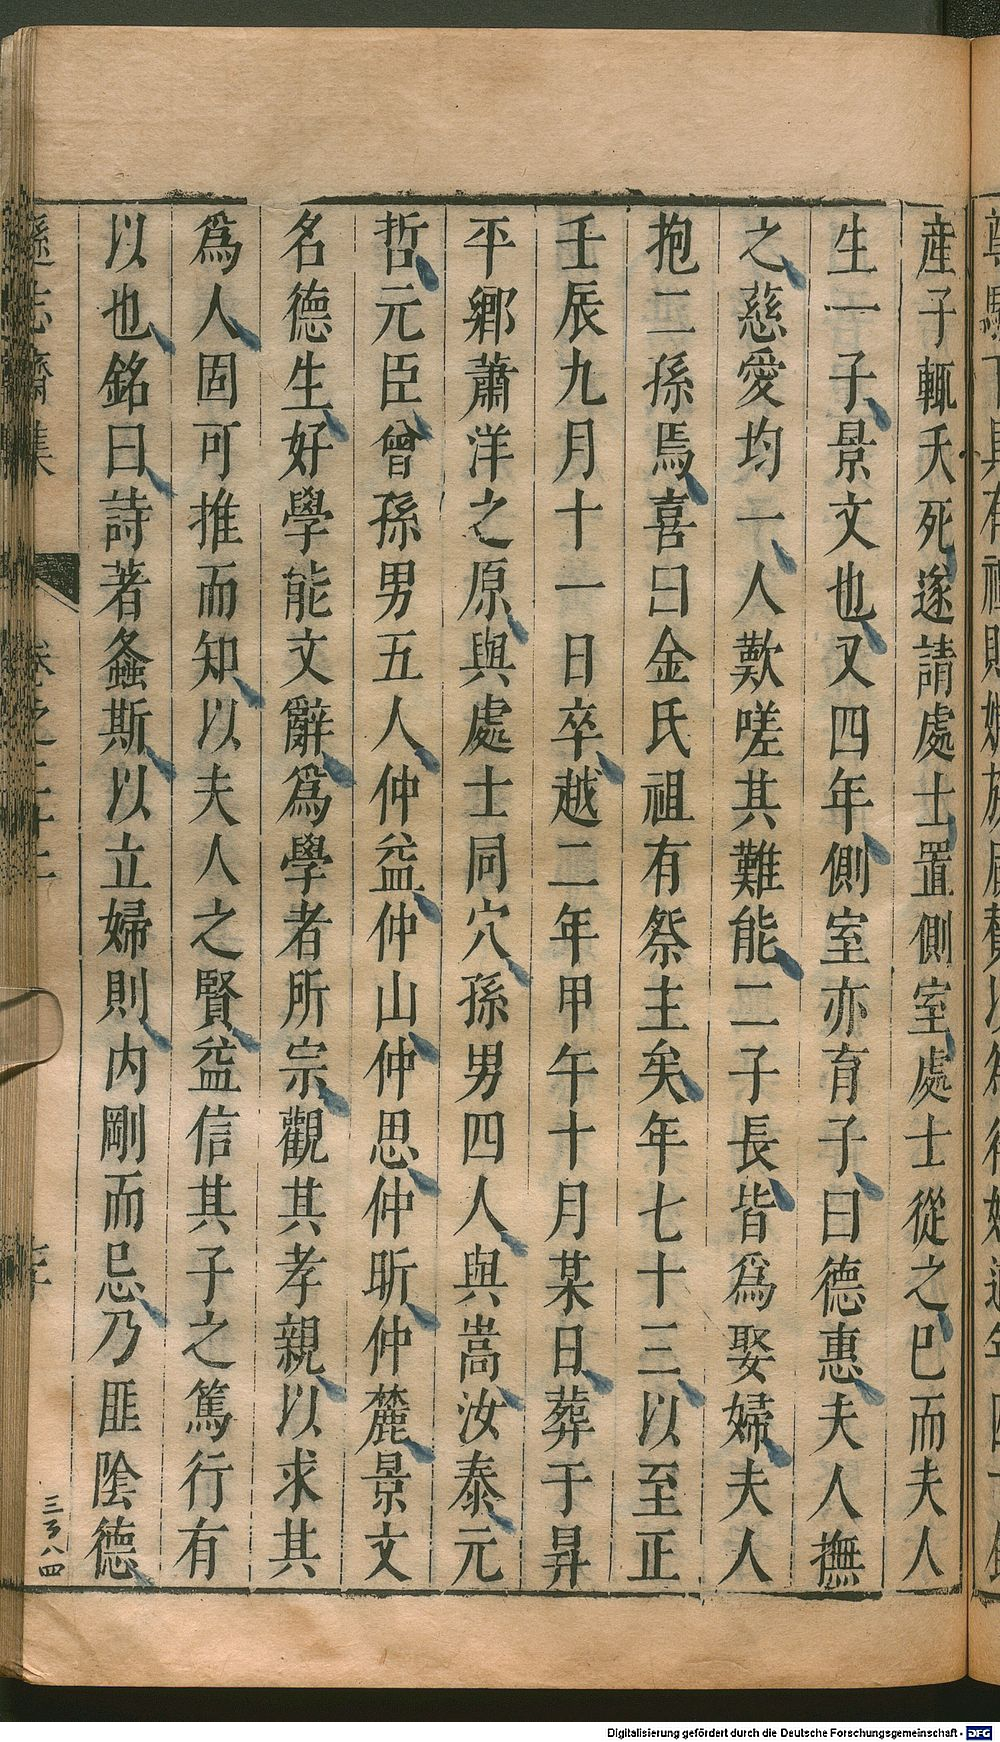 産子輒夭死遂請處士置側室處士從之巳而夫人
生一子景文也又四年側室亦育子曰德惠夫人撫
之慈愛均一人歎嗟其難能二子長皆爲娶婦夫人
抱二孫焉喜曰金氏祖有祭主矣年七十三以至正
壬辰九月十一日卒越二年甲午十月某日葬于昇
平鄉蕭洋之原與處士同穴孫男四人與嵩汝泰元
哲元臣曾孫男五人仲益仲山仲思仲昕仲麓景文
名德生好學能文辭爲學者所宗觀其孝親以求其
爲人固可推而知以夫人之賢益信其子之篤行有
以也銘曰詩著螽斯以立婦則内剛而忌乃匪陰德
遜志齋集
卷之二十二
三百八四
Digitalisierung gefördert durch die Deutsche Forschungsgemeinschaft - DFG